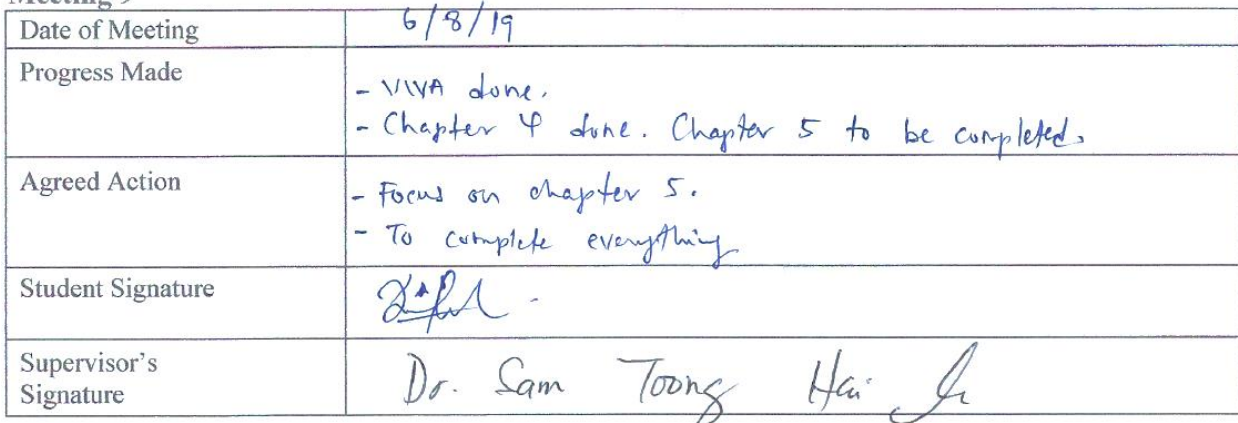 Date of Meeting 6/8/19
Progress Made
- VIVA done.
- Chapter 4 done. Chapter 5 to be completed.
Agreed Action
- Focus on chapter 5.
- To complete everything
Student Signature
Supervisor's
Signature
Dr. Sam Toong Hai